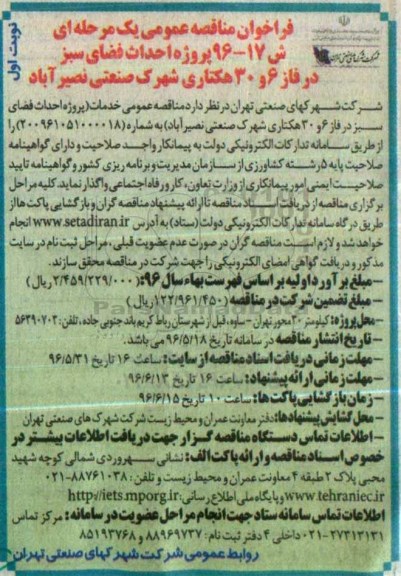 نوبت اول
فراخوان مناقصه عمومی یک مرحله ای
ش ۱۷-۹۶ پروژه احداث فضای سبز
در فاز ۶ و ۳۰ هکتاری شهرک صنعتی نصیر آباد
شرکت شهرکهای صنعتی تهران در نظر دارد مناقصه عمومی خدمات (پروژه احداث فضای
سبز در فاز ۶ و ۳۰ هکتاری شهرک صنعتی نصیرآباد) به شماره (۲۰۰۹۶۱۰۵۱۰۰۰۰۱۸) را
از طریق سامانه تدارکات الکترونیکی دولت به پیمانکار واجد صلاحیت و دارای گواهینامه
صلاحیت پایه ۵ رشته کشاورزی از سازمان مدیریت و برنامه ریزی کشور و گواهینامه تایید
صلاحیت ایمنی امور پیمانکاری از وزارت تعاون، کار و رفاه اجتماعی واگذار نماید. کلیه مراحل
برگزاری مناقصه از دریافت اسناد مناقصه تا ارائه پیشنهاد مناقصه گران و بازگشایی پاکت ها از
طریق درگاه سامانه تدارکات الکترونیکی دولت (ستاد) به آدرس www.setadiran.ir انجام
خواهد شد و لازم است مناقصه گران در صورت عدم عضویت قبلی، مراحل ثبت نام در سایت
مذکور و دریافت گواهی امضای الکترونیکی را جهت شرکت در مناقصه محقق سازند.
-مبلغ برآورد اولیه بر اساس فهرست بهاء سال ۹۶: (۲/۴۵۹/۲۲۹/۰۰۰ ریال)
-مبلغ تضمین شرکت در مناقصه (۱۲۲/۹۶۱/۴۵۰ ریال)
-محل پروژه: کیلومتر ۳۰ محور تهران - ساوه، قبل از شهرستان رباط کریم باند جنوبی جاده، تلفن: ۵۶۳۹۰۷۰۲
- تاریخ انتشار مناقصه در سامانه تاریخ ۹۶/۵/۱۸ می باشد.
-مهلت زمانی دریافت اسناد مناقصه از سایت: ساعت ۱۶ تاریخ ۹۶/۵/۳۱
- مهلت زمانی ارائه پیشنهاد: ساعت ۱۶ تاریخ ۹۶/۶/۱۳
- زمان بازگشایی پاکت ها: ساعت ۱۰ تاریخ ۹۶/۶/۱۵
- محل گشایش پیشنهادها: دفتر معاونت عمران و محیط زیست شرکت شهرک های صنعتی تهران
- اطلاعات تماس دستگاه مناقصه گزار جهت دریافت اطلاعات بیشتر در
خصوص اسناد مناقصه و ارائه پاکت الف: نشانی سهروردی شمالی کوچه شهید
محبی پلاک ۲ طبقه ۴ معاونت عمران و محیط زیست و تلفن: ۸۸۷۶۱۰۳۸-۰۲۱
www.tehraniec.ir و پایگاه ملی اطلاع رسانی: http://iets.mporg.ir
اطلاعات تماس سامانه ستاد جهت انجام مراحل عضویت در سامانه: مرکز تماس
۲۷۳۱۳۱۳۱-۰۲۱ داخلی ۴ دفتر ثبت نام: ۸۸۹۶۹۷۳۷ و ۸۵۱۹۳۷۶۸
روابط عمومی شرکت شهرکهای صنعتی تهران